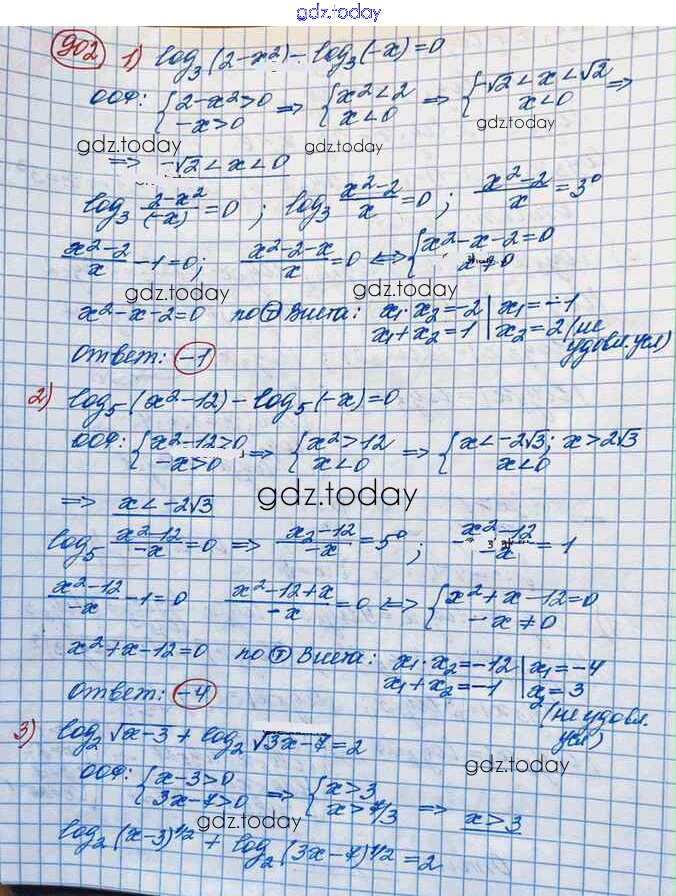 gdz.today
902 1) log₃(2-x²) - log₃(-x) = 0
ООФ: {2-x²>0 ; -x>0 ⇒ {x²<2 ; x<0 ⇒ {-√2<x<√2 ; x<0 ⇒
gdz.today gdz.today gdz.today
⇒ -√2<x<0
log₃ (2-x²)/(-x) = 0 ; log₃ (x²-2)/x = 0 ; (x²-2)/x = 3⁰
(x²-2)/x - 1 = 0; (x²-2-x)/x = 0 ⇔ {x²-x-2=0 ; x≠0
gdz.today gdz.today
x²-x-2=0 по Т Виета: x₁·x₂=-2 | x₁=-1
x₁+x₂=1 | x₂=2 (не удовл. усл)
Ответ: -1
2) log₅(x²-12) - log₅(-x) = 0
ООФ: {x²-12>0 ; -x>0 ⇒ {x²>12 ; x<0 ⇒ {x<-2√3; x>2√3 ; x<0
gdz.today
⇒ x<-2√3
log₅ (x²-12)/-x = 0 ⇒ (x²-12)/-x = 5⁰ ; (x²-12)/-x = 1
(x²-12)/-x - 1 = 0 (x²-12+x)/-x = 0 ⇔ {x²+x-12=0 ; -x≠0
x²+x-12=0 по Т Виета: x₁·x₂=-12 | x₁=-4
x₁+x₂=-1 | x₂=3
(не удовл. усл)
Ответ: -4
3) log₂√x-3 + log₂√3x-7 = 2
gdz.today
ООФ: {x-3>0 ; 3x-7>0 ⇒ {x>3 ; x>7/3 ⇒ x>3
gdz.today
log₂(x-3)^1/2 + log₂(3x-7)^1/2 = 2